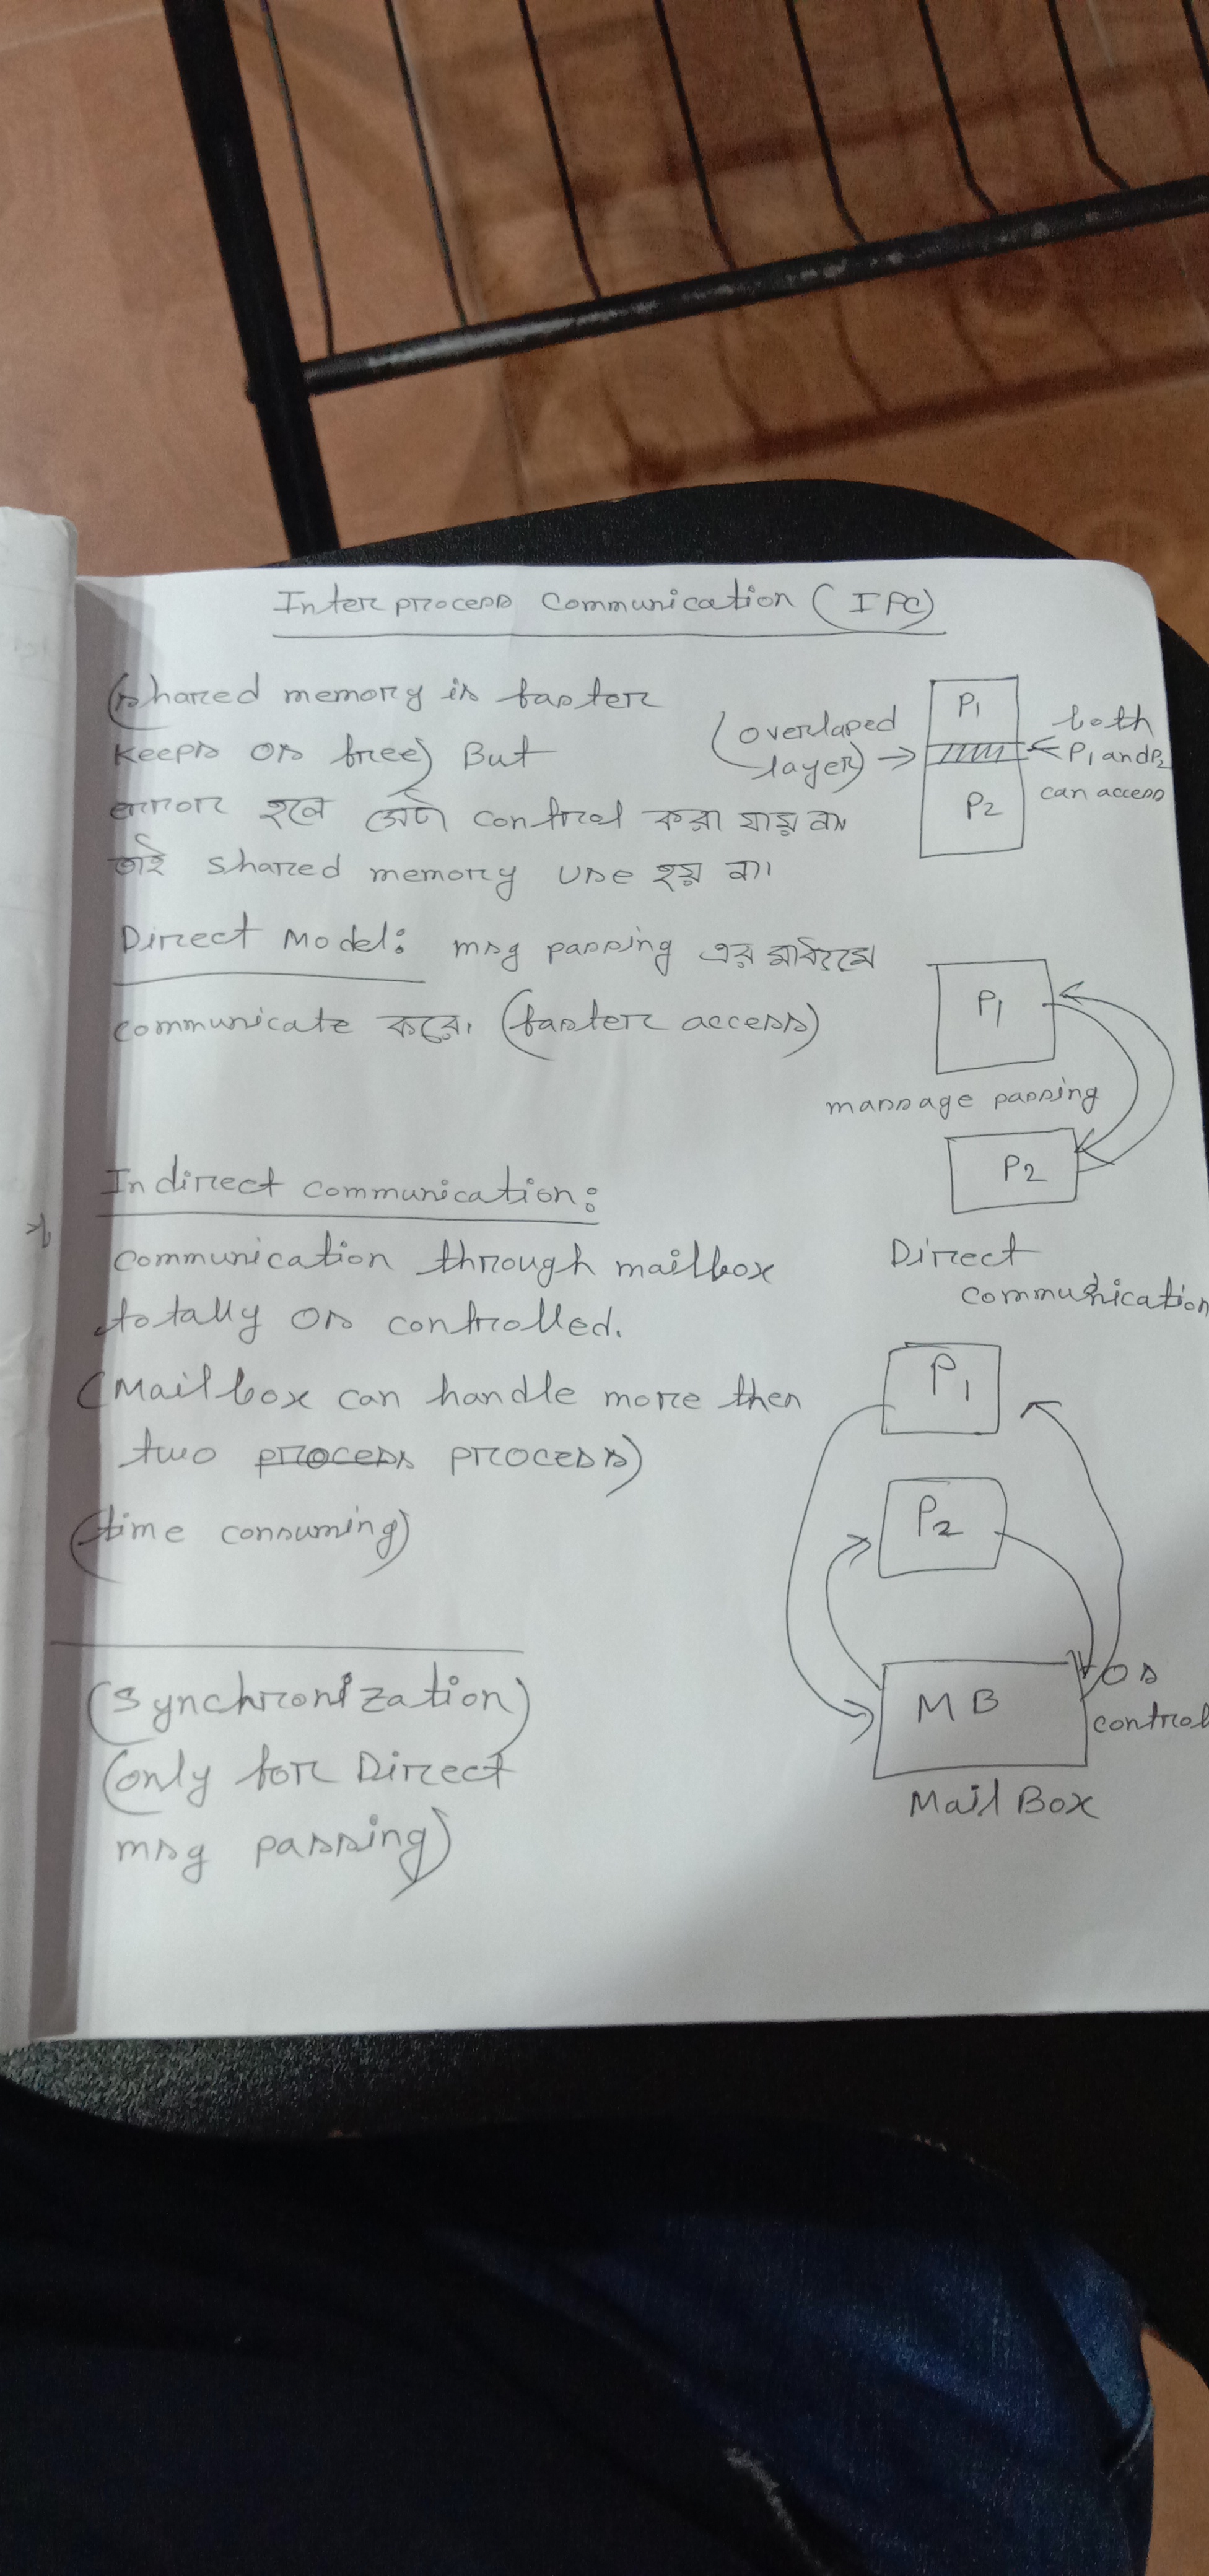 Inter process Communication (IPC)
(shared memory is faster
keeps os free) But
error হলে সেটা control করা যায় না
তাই shared memory use হয় না।
(overlaped
layer)
P1
P2
both
P1 and P2
can access
Direct Model: msg passing এর মাধ্যমে
communicate করে। (faster access)
P1
massage passing
P2
Direct
communication
Indirect communication:
communication through mailbox
totally os controlled.
(Mailbox can handle more then
two process process)
(time consuming)
P1
P2
MB
os
control
Mail Box
(synchronization)
(only for Direct
msg passing)